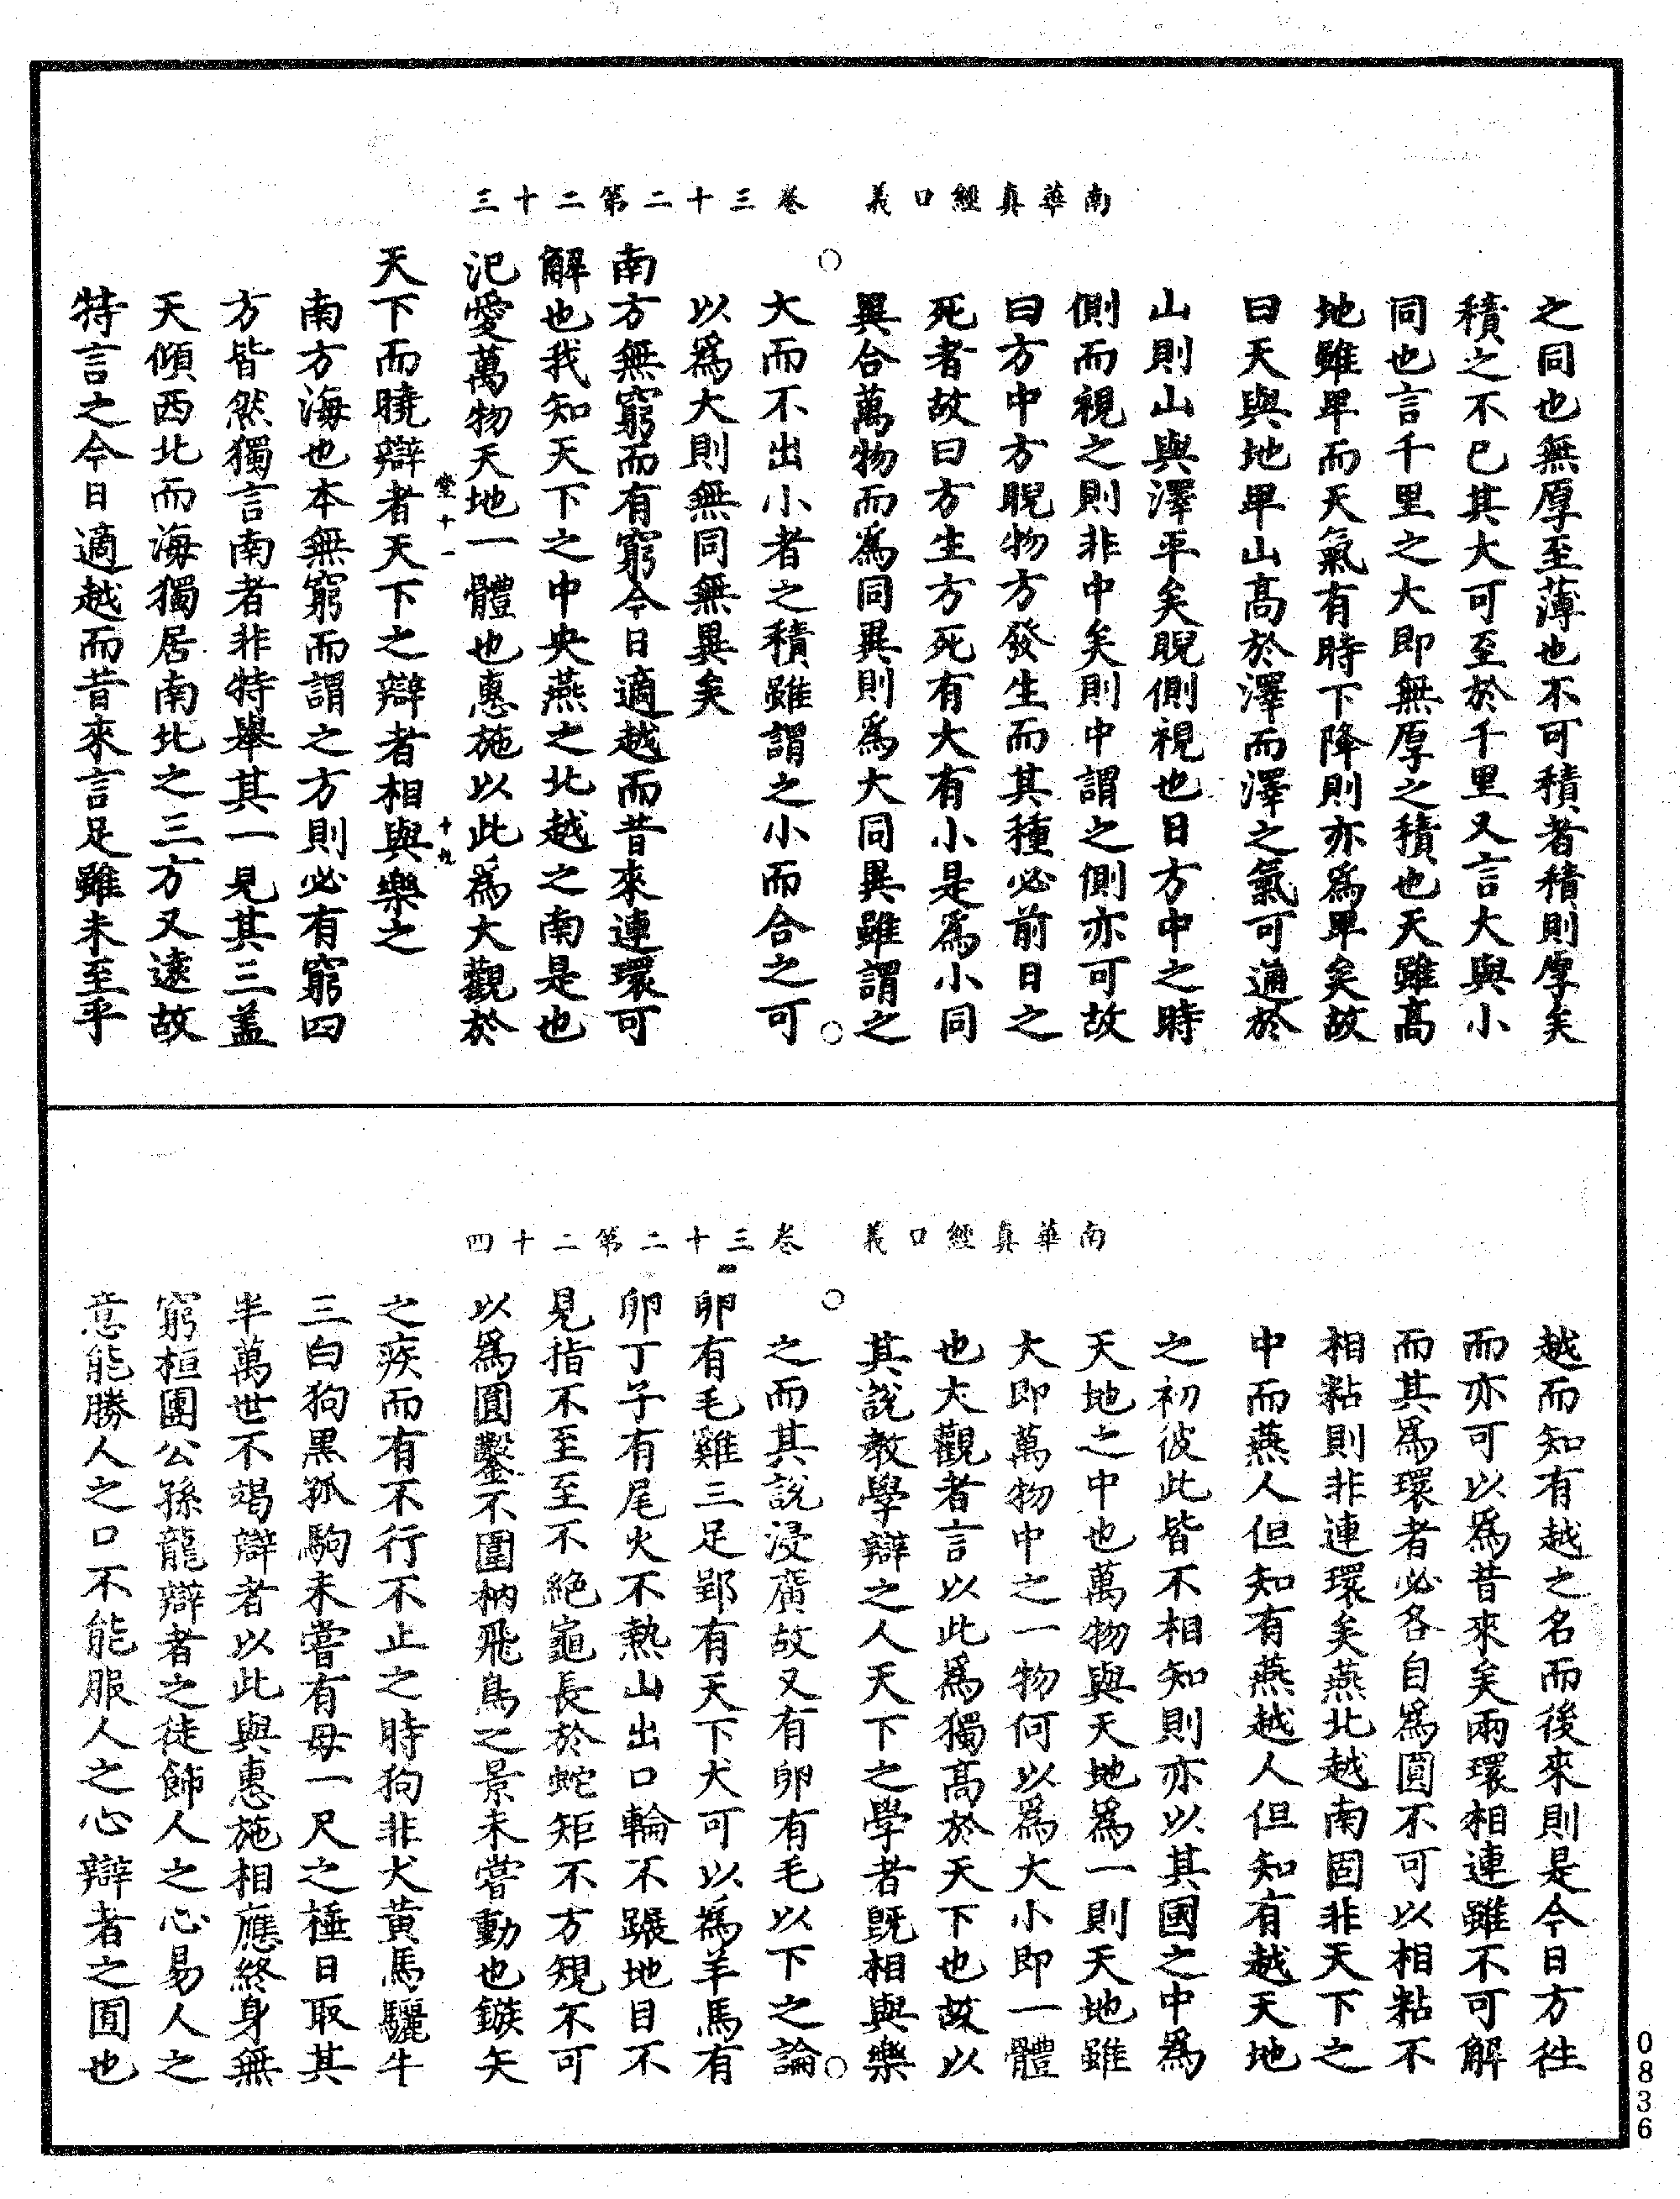 南華真經口義　卷三十二第二十三
之同也無厚至薄也不可積者積則厚矣
積之不已其大可至於千里又言大與小
同也言千里之大即無厚之積也天雖高
地雖卑而天氣有時下降則亦為卑矣故
曰天與地卑山高於澤而澤之氣可通於
山則山與澤平矣睨側視也日方中之時
側而視之則非中矣則中謂之側亦可故
曰方中方睨物方發生而其種必前日之
死者故曰方生方死有大有小是為小同
異合萬物而為同異則為大同異雖謂之
大而不出小者之積雖謂之小而合之可
以為大則無同無異矣
南方無窮而有窮今日適越而昔來連環可
解也我知天下之中央燕之北越之南是也
氾愛萬物天地一體也惠施以此為大觀於
天下而曉辯者天下之辯者相與樂之
南方海也本無窮而謂之方則必有窮四
方皆然獨言南者非特舉其一見其三蓋
天傾西北而海獨居南北之三方又遠故
特言之今日適越而昔來言足雖未至乎
南華真經口義　卷三十二第二十四
越而知有越之名而後來則是今日方往
而亦可以為昔來矣兩環相連雖不可解
而其為環者必各自為圓不可以相粘不
相粘則非連環矣燕北越南固非天下之
中而燕人但知有燕越人但知有越天地
之初彼此皆不相知則亦以其國之中為
天地之中也萬物與天地為一則天地雖
大即萬物中之一物何以為大小即一體
也大觀者言以此為獨高於天下也故以
其說教學辯之人天下之學者既相與樂
之而其說浸廣故又有卵有毛以下之論
卵有毛雞三足郢有天下犬可以為羊馬有
卵丁子有尾火不熱山出口輪不蹍地目不
見指不至至不絕龜長於蛇矩不方規不可
以為圓鑿不圍枘飛鳥之景未嘗動也鏃矢
之疾而有不行不止之時狗非犬黃馬驪牛
三白狗黑孤駒未嘗有母一尺之棰日取其
半萬世不竭辯者以此與惠施相應終身無
窮桓團公孫龍辯者之徒飾人之心易人之
意能勝人之口不能服人之心辯者之囿也
0836